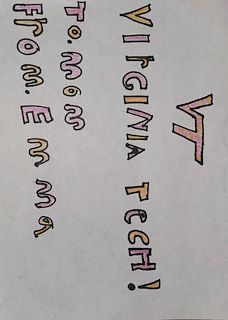 VT
VIRGINIA TecH!
To. mom
From. Emma